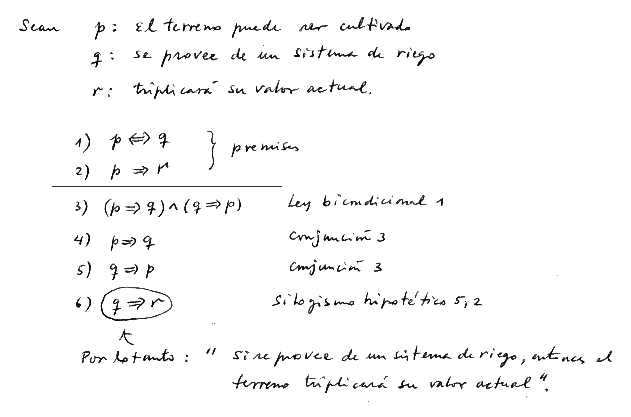 Sean p: El terreno puede ser cultivado
q: se provee de un sistema de riego
r: triplicará su valor actual.
1) p ⇔ q
2) p ⇒ r } premisas
3) (p ⇒ q) ∧ (q ⇒ p) Ley bicondicional 1
4) p ⇒ q Conjunción 3
5) q ⇒ p Conjunción 3
6) q ⇒ r Silogismo hipotético 5, 2
Por lo tanto: " Si se provee de un sistema de riego, entonces el
terreno triplicará su valor actual".